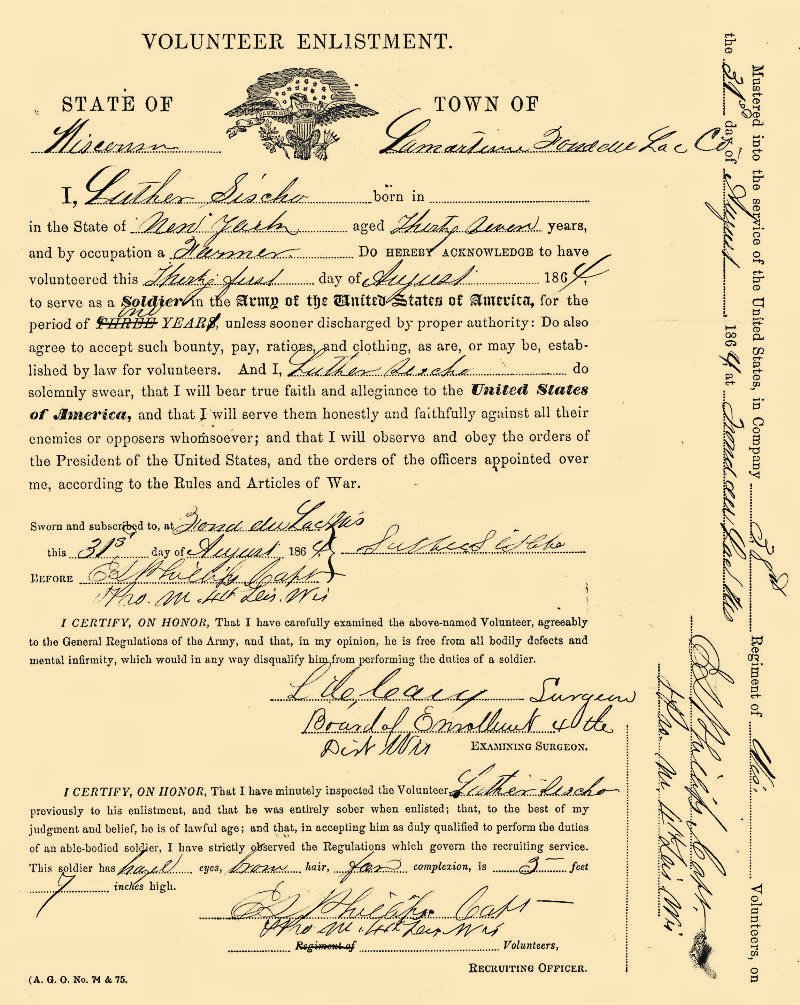 VOLUNTEER ENLISTMENT.
STATE OF TOWN OF
Wisconsin Lamartine Fond du Lac Co
I, Luther Sischo born in
in the State of New York aged Thirty Seven years,
and by occupation a Farmer. Do HEREBY ACKNOWLEDGE to have
volunteered this Thirty first day of August 1864,
to serve as a Soldier in the Army of the United States of America, for the
period of THREE one YEARS, unless sooner discharged by proper authority: Do also
agree to accept such bounty, pay, rations, and clothing, as are, or may be, estab-
lished by law for volunteers. And I, Luther Sischo do
solemnly swear, that I will bear true faith and allegiance to the United States
of America, and that I will serve them honestly and faithfully against all their
enemies or opposers whomsoever; and that I will observe and obey the orders of
the President of the United States, and the orders of the officers appointed over
me, according to the Rules and Articles of War.
Sworn and subscribed to, at Fond du Lac Wis
this 31st day of August 1864 Luther Sischo
BEFORE E L Phillips Capt
Pro. M. 4th Dis. Wis
I CERTIFY, ON HONOR, That I have carefully examined the above-named Volunteer, agreeably
to the General Regulations of the Army, and that, in my opinion, he is free from all bodily defects and
mental infirmity, which would in any way disqualify him from performing the duties of a soldier.
Surgeon
Board of Enrollment 4 the
Dist Wis EXAMINING SURGEON.
I CERTIFY, ON HONOR, That I have minutely inspected the Volunteer Luther Sischo
previously to his enlistment, and that he was entirely sober when enlisted; that, to the best of my
judgment and belief, he is of lawful age; and that, in accepting him as duly qualified to perform the duties
of an able-bodied soldier, I have strictly observed the Regulations which govern the recruiting service.
This soldier has hazel eyes, brown hair, fair complexion, is 5 feet
7 inches high.
E L Phillips Capt
Pro M. 4th Dis Wis
Regiment of Volunteers,
RECRUITING OFFICER.
(A. G. O. No. 74 & 75.
Mustered into the service of the United States, in Company 38th Regiment of Wis. Volunteers, on
the 31st day of August 1864 at Fond du Lac Wis
E L Phillips Capt.
Pro. M. 4th Dis. Wis